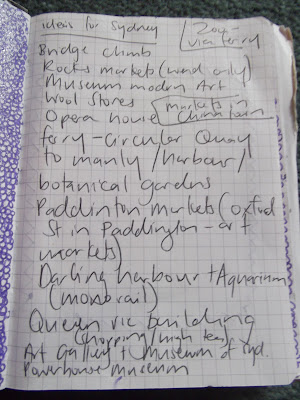 ideas for Sydney
Zoo -
via ferry
Bridge climb
Rocks markets (wend only)
Museum modern Art
Wool Stores
markets in
China town
Opera house
ferry - Circular Quay
to manly / harbour /
botanical gardens
Paddinton markets (oxford
St in Paddington - art
markets)
Darling harbour + Aquarium
(monorail)
Queen vic building
(shopping / high tea)
Art Gallery + Museum of Syd.
Powerhouse museum